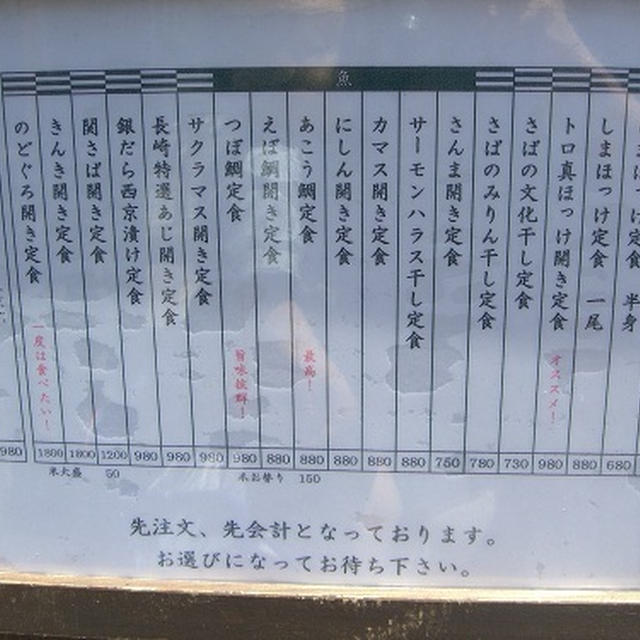 魚
半身
しまほっけ定食 一尾
トロ真ほっけ開き定食
オススメ！
さばの文化干し定食
さばのみりん干し定食
さんま開き定食
サーモンハラス干し定食
カマス開き定食
にしん開き定食
あこう鯛定食
最高！
えぼ鯛開き定食
つぼ鯛定食
旨味抜群！
サクラマス開き定食
長崎特選あじ開き定食
銀だら西京漬け定食
関さば開き定食
きんき開き定食
一度は食べたい！
のどぐろ開き定食
980 1800 1800 1200 980 980 980 980 880 880 880 880 880 750 780 730 980 880 680
米大盛 50 米お替り 150
先注文、先会計となっております。
お選びになってお待ち下さい。